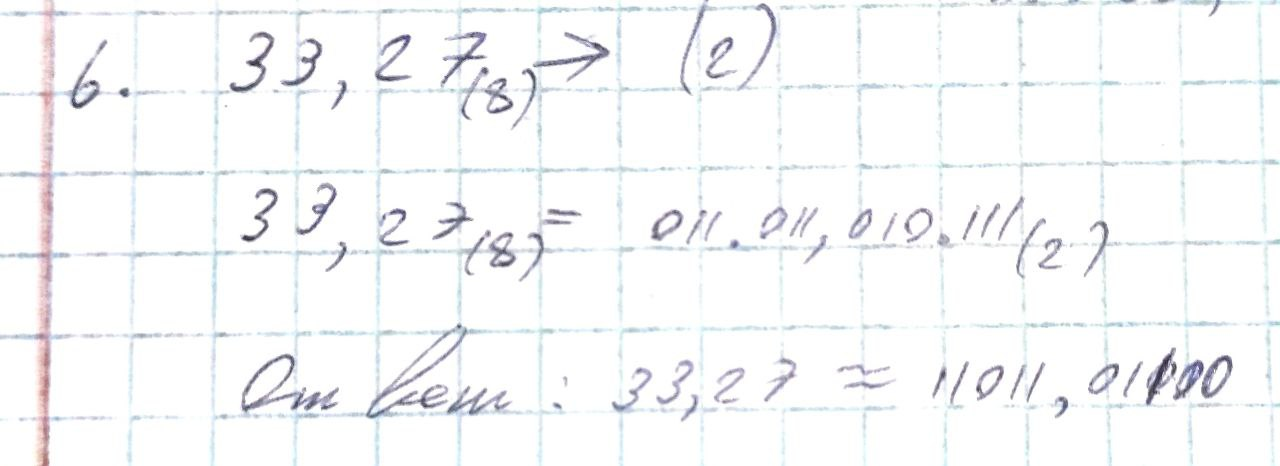 6. 33,27(8) → (2)
33,27(8) = 011.011,010.111(2)
Ответ: 33,27 ≈ 11011,01100